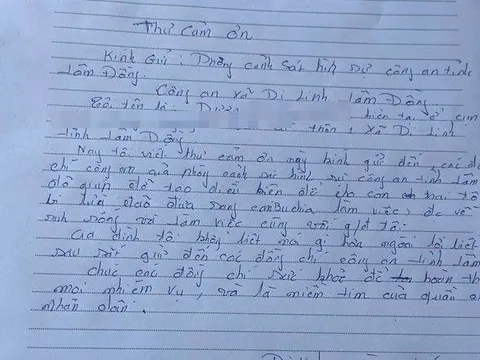 Thư cảm ơn
Kính Gửi: Phòng cảnh sát hình sự công an tỉnh
Lâm Đồng.
Công an xã Di Linh Lâm Đồng
Tôi tên là: hiện tại ở
thôn 1 xã Di Linh
tỉnh Lâm Đồng
Nay tô viết thư cảm ơn này kính gửi đến, các đ
chí công an phòng cảnh sát hình sự công an tỉnh Lâm
đã giúp đỡ tạo điều kiện để cho con trai tô
bị lừa đảo đưa sang canBuchia làm việc, đc về
sinh sống và làm việc cùng với g/đ tô.
Gia đình tôi không biết nói gì hơn ngoài lời biết
sâu sắc gửi đến các đồng chí công an tỉnh Lâm
chúc các đồng chí sức khỏe để hoàn th
mọi nhiệm vụ, và là niềm tin của quần
nhân dân.